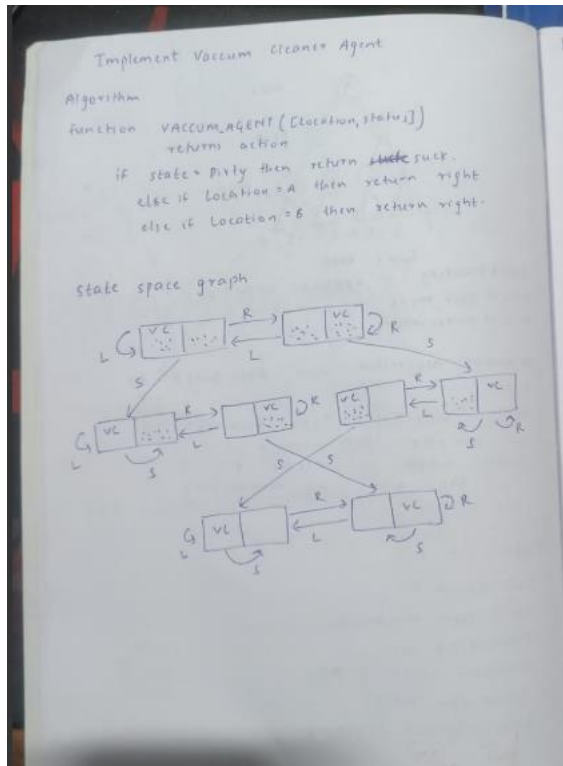 Implement Vaccum Cleaner Agent
Algorithm
function VACCUM_AGENT ([Location, status])
returns action
if state = Dirty then return suck.
else if Location = A then return right
else if Location = B then return right.
state space graph
VC R VC
L L R
S S
VC R VC R VC R VC
L L L
S S S S R
VC R VC R
L L
S S